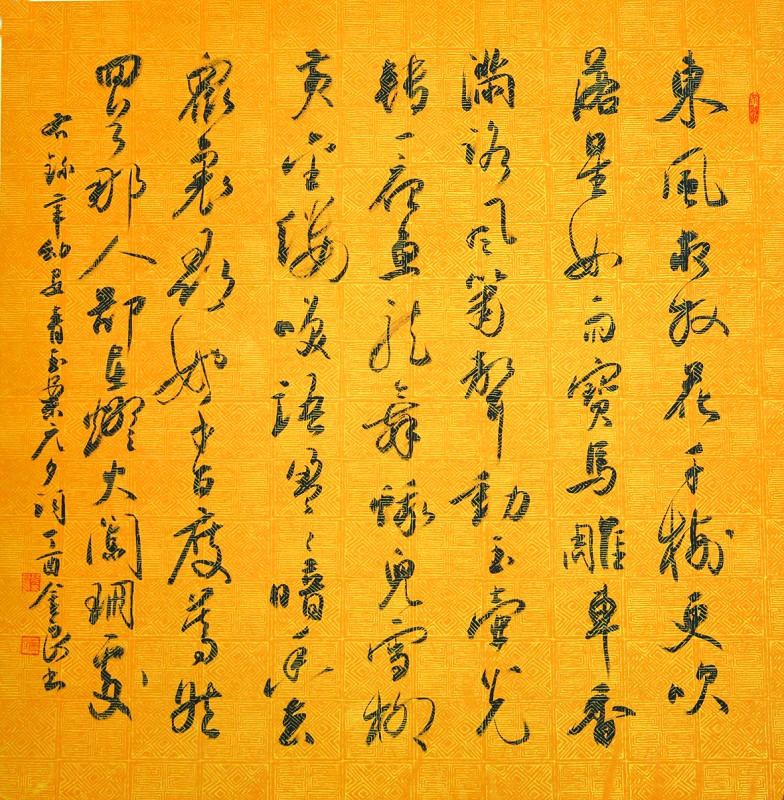 東風夜放花千樹更吹
落星如雨寶馬雕車香
滿路鳳簫聲動玉壺光
轉一夜魚龍舞蛾兒雪柳
黃金縷咲語盈〻暗香去
眾裏尋他千百度驀然
回首那人卻在燈火闌珊處
右錄辛幼安青玉案元夕詞丁酉金良书